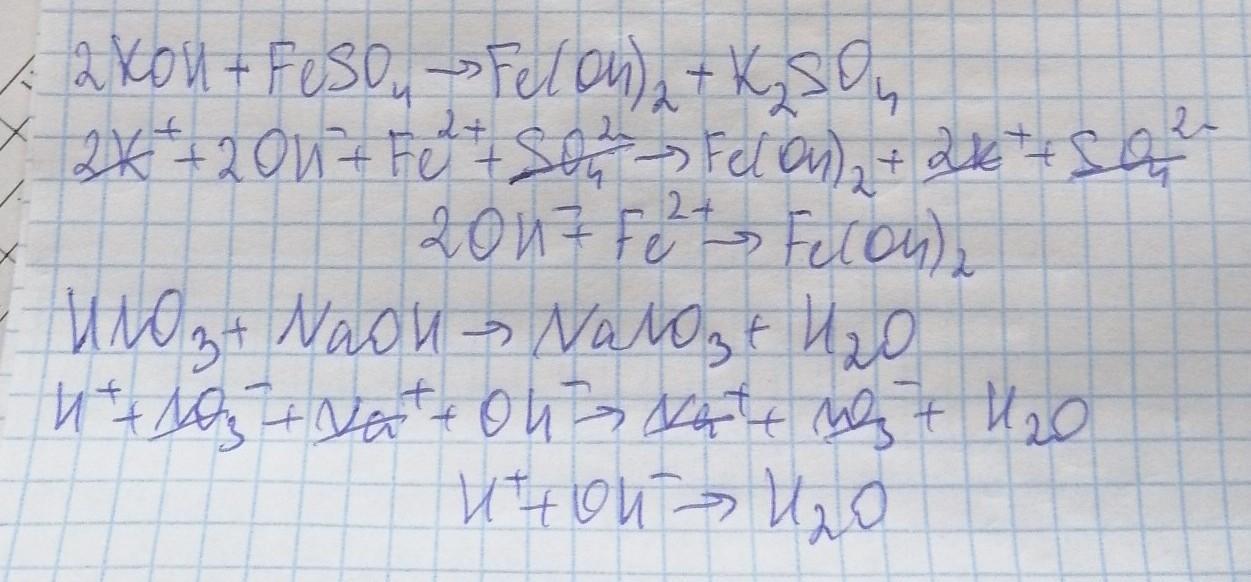 2KOH + FeSO₄ → Fe(OH)₂ + K₂SO₄
2K⁺ + 2OH⁻ + Fe²⁺ + SO₄²⁻ → Fe(OH)₂ + 2K⁺ + SO₄²⁻
2OH⁻ + Fe²⁺ → Fe(OH)₂
HNO₃ + NaOH → NaNO₃ + H₂O
H⁺ + NO₃⁻ + Na⁺ + OH⁻ → Na⁺ + NO₃⁻ + H₂O
H⁺ + OH⁻ → H₂O